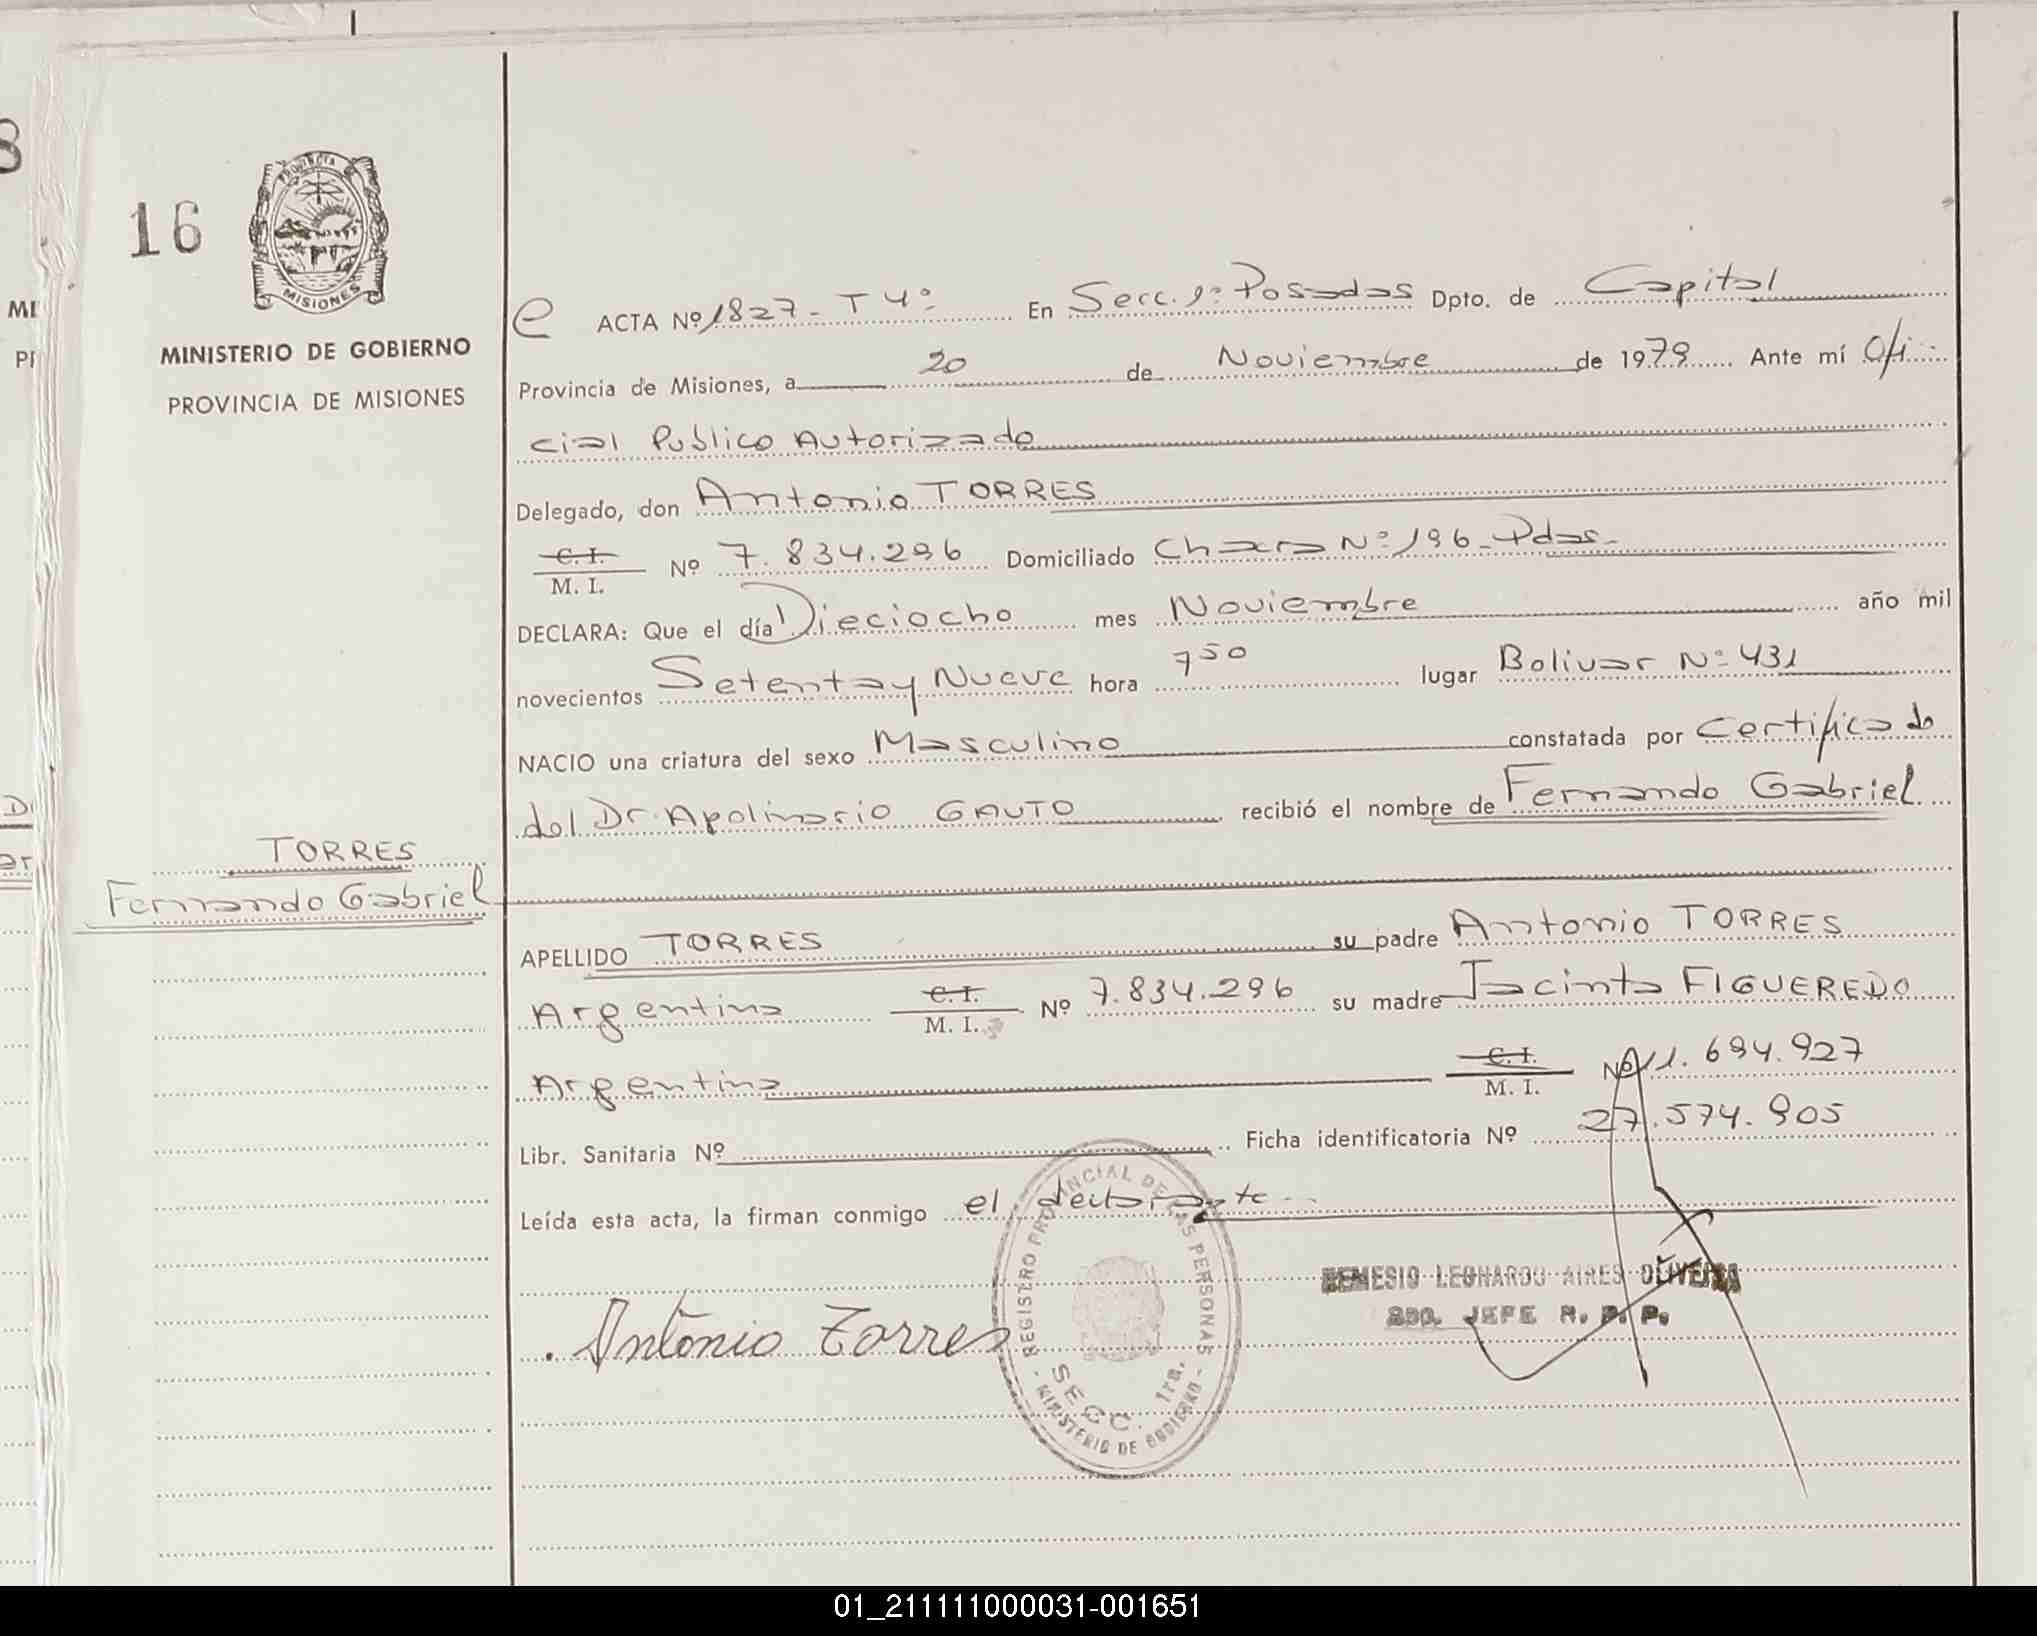 8
16
PROVINCIA
MISIONES
MINISTERIO DE GOBIERNO
PROVINCIA DE MISIONES
e ACTA Nº 1827 - T 4º En Secc. 1ª Posadas Dpto. de Capital
Provincia de Misiones, a 20 de Noviembre de 1979 Ante mí Ofi
cial Publico Autorizado
Delegado, don Antonio TORRES
C. I. M. I. Nº 7.834.296 Domiciliado Chacra Nº 196 - Pdas-
DECLARA: Que el día Dieciocho mes Noviembre año mil
novecientos Setenta y Nueve hora 7 50 lugar Bolivar Nº 431
NACIO una criatura del sexo Masculino constatada por Certificado
del Dr. Apolinario GAUTO recibió el nombre de Fernando Gabriel
TORRES
Fernando Gabriel
APELLIDO TORRES su padre Antonio TORRES
Argentina C. I. M. I. Nº 7.834.296 su madre Jacinta FIGUEREDO
Argentina C. I. M. I. Nº 11.694.927
Libr. Sanitaria Nº Ficha identificatoria Nº 27.574.905
Leída esta acta, la firman conmigo el declarante
REGISTRO PROVINCIAL DE LAS PERSONAS
SECC. 1ra.
MINISTERIO DE GOBIERNO
NEMESIO LEONARDO AIRES OLIVEIRA
JEFE R. P. P.
Antonio Torres
01_211111000031-001651